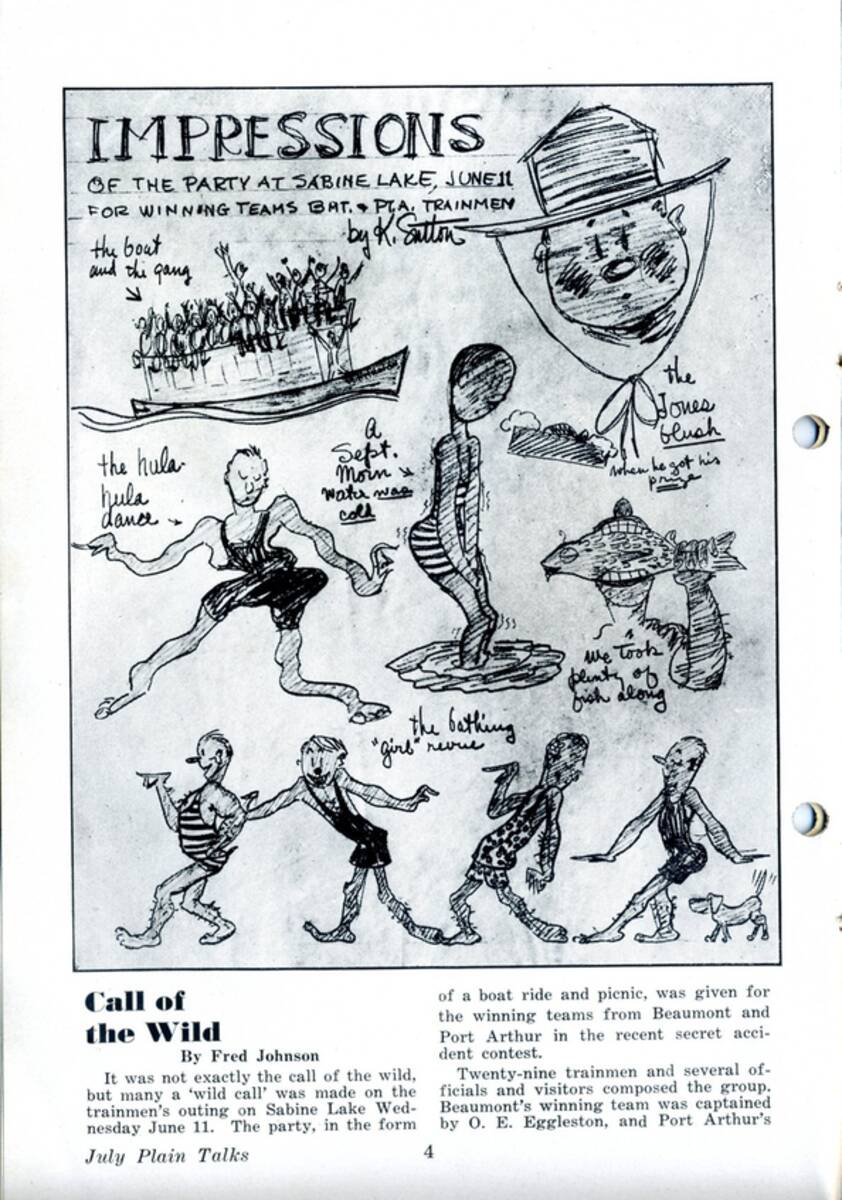 IMPRESSIONS
OF THE PARTY AT SABINE LAKE, JUNE 11
FOR WINNING TEAMS BMT. & P.T.A. TRAINMEN
by K. Sutton
the boat
and the gang
the
Jones
blush
when he got his
prize
A
Sept.
Morn
water was
cold
the hula
hula
dance
we took
plenty of
fish along
the bathing
"girl" revue
Call of
the Wild
By Fred Johnson
It was not exactly the call of the wild,
but many a 'wild call' was made on the
trainmen's outing on Sabine Lake Wed-
nesday June 11. The party, in the form
of a boat ride and picnic, was given for
the winning teams from Beaumont and
Port Arthur in the recent secret acci-
dent contest.
Twenty-nine trainmen and several of-
ficials and visitors composed the group.
Beaumont's winning team was captained
by O. E. Eggleston, and Port Arthur's
July Plain Talks
4